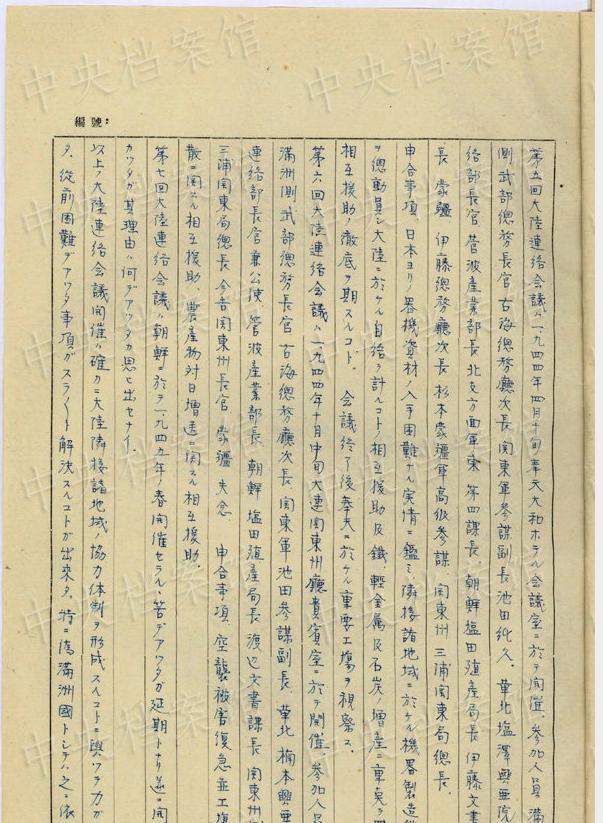 編號：
第五回大陸連絡会議ハ一九四四年四月十旬奉天大和ホテル会議室ニ於テ開催、参加人員 満
側武部總務長官 古海總務廳次長 関東軍参謀副長池田純久、華北塩澤興亜院
絡部長官 菅波産業部長、北支方面軍 第四課長、朝鮮塩田殖産局長 伊藤文書
長 蒙疆 伊藤總務廳次長 杉本蒙疆軍高級参謀 関東州 三浦関東局總長、
申合事項 日本ヨリノ器機資材ノ入手困難ナル実情ニ鑑ミ、隣接諸地域ニ於ケル機器製造
ヲ總動員シ大陸ニ於ケル自給ヲ計ルコト、相互援助及鐵、軽金属及石炭ノ増産ニ重点ヲ
相互援助ノ徹底ヲ期スルコト、 会議終了後奉天ニ於ケル重要工場ヲ視察ス、
第六回大陸連絡会議ハ一九四四年十月中旬大連関東州廳貴賓室ニ於テ開催、参加人員
満洲側武部總務長官 古海總務廳次長 関東軍池田参謀副長、華北 楠本興亜
連絡部長官兼公使、菅波産業部長、朝鮮 塩田殖産局長 渡辺文書課長 関東州
三浦関東局總長 今吉関東州長官 蒙疆 失念 申合事項、空襲被害復急並工場
散ニ関スル相互援助、農産物対日増送ニ関スル相互援助、
第七回大陸連絡会議ハ朝鮮ニ於テ一九四五年ノ春開催セラルル筈デアツタガ延期トナリ遂ニ開
カツタガ其理由ハ何デアツタカ思ヒ出セナイ、
以上ノ大陸連絡会議開催ハ確カニ大陸隣接諸地域ノ協力体制ヲ形成スルコトニ與ツテ力ガ
タ、從前困難デアツタ事項ガスラスラト解決スルコトガ出來タ、特ニ偽満洲國トシテハ之ニ依
中央档案馆
中央档案馆